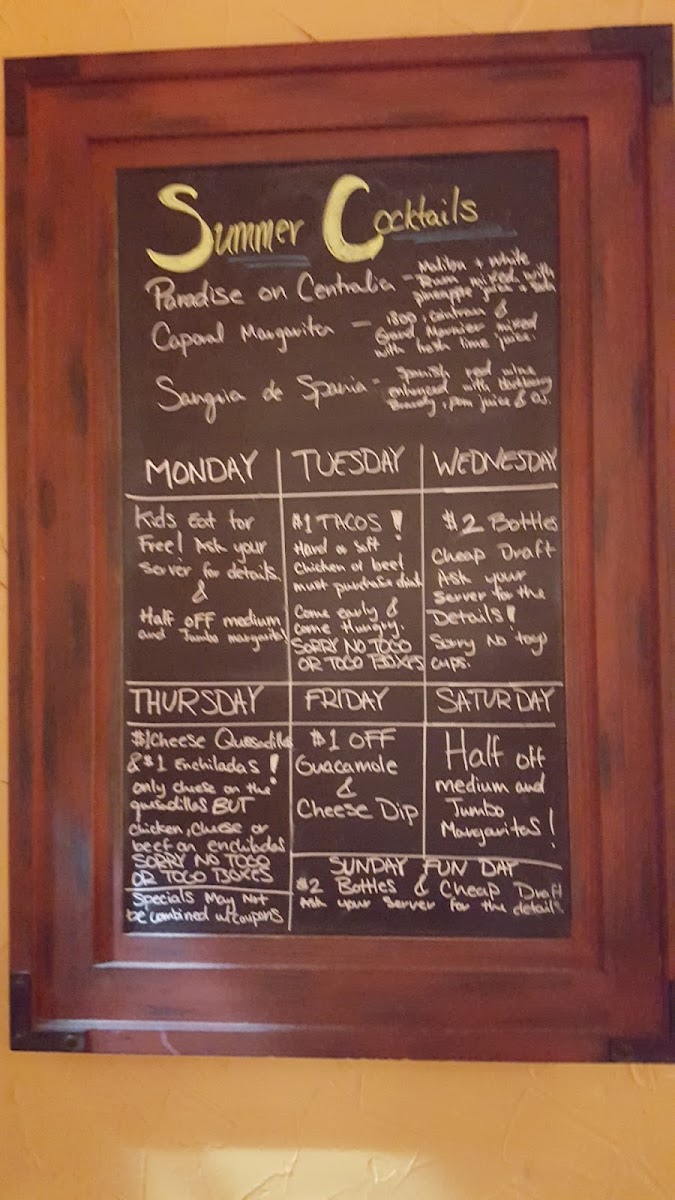 Summer Cocktails
Paradise on Centralia - Malibu + White
Rum mixed with
pineapple juice +
Caporal Margarita - 1800, Cointrau &
Grand Marnier mixed
with fresh lime juice.
Sangria de Spania - Spanish red wine
enhanced with
Brandy, juice & OJ.
MONDAY
Kids Eat for
Free! Ask your
Server for details.
&
Half OFF medium
and Jumbo margaritas
TUESDAY
$1 TACOS!
Hard or soft
Chicken or beef
must purchase drink
Come early &
come Hungry.
SORRY NO TOGO
OR TOGO BOXES
WEDNESDAY
$2 Bottles
Cheap Draft
Ask your
Server for the
Details!
Sorry No togo
cups.
THURSDAY
$1 Cheese Quesadilla
& $1 Enchiladas!
only cheese on the
quesadillas BUT
chicken, cheese or
beef on enchiladas
SORRY NO TOGO
OR TOGO BOXES
Specials May Not
be combined w/coupons
FRIDAY
$1 OFF
Guacamole
&
Cheese Dip
SATURDAY
Half off
medium and
Jumbo
Margaritas!
SUNDAY FUN DAY
$2 Bottles & Cheap Draft
Ask your Server for the details